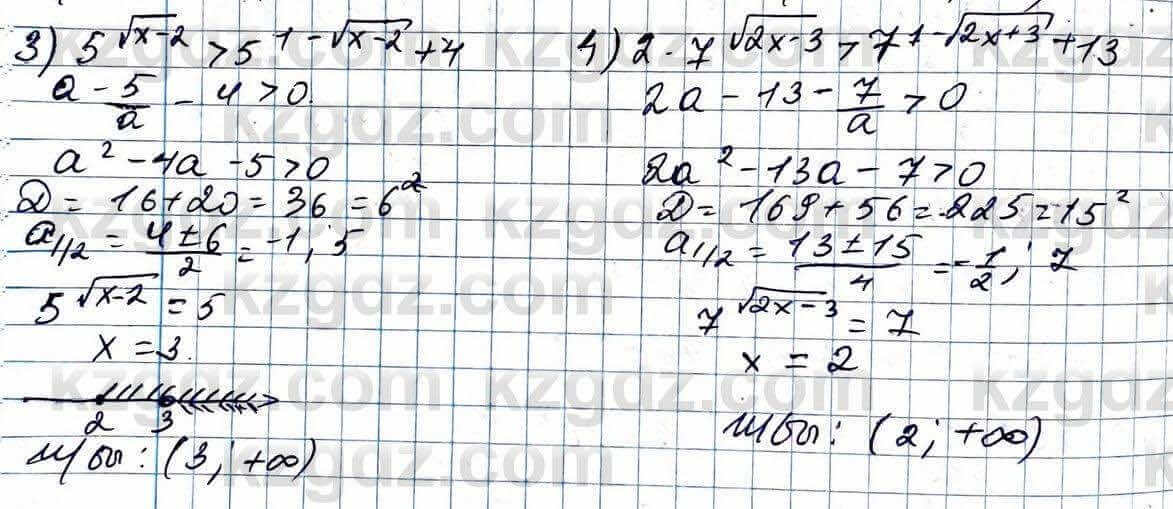 3) 5^√(x-2) > 5^(1-√(x-2)) + 4
a - 5/a - 4 > 0.
a² - 4a - 5 > 0
D = 16+20 = 36 = 6²
a1/2 = (4±6)/2 = -1; 5
5^√(x-2) = 5
x = 3.
2 3
Ж/бы: (3; +∞)
4) 2·7^√(2x-3) > 7^(1-√(2x+3)) + 13
2a - 13 - 7/a > 0
2a² - 13a - 7 > 0
D = 169 + 56 = 225 = 15²
a1/2 = (13±15)/4 = -1/2; 7
7^√(2x-3) = 7
x = 2
Ж/бы: (2; +∞)
kzgdz.com